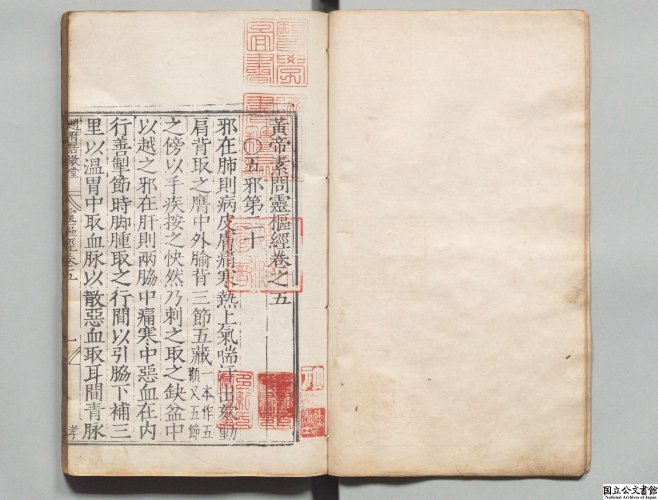 黃帝素問靈樞經卷之五
五邪第二十
邪在肺則病皮膚痛寒熱上氣喘汗出欬動
肩背取之膺中外腧背三節五藏一本作五顀又五節
之傍以手疾按之快然乃刺之取之缺盆中
以越之邪在肝則兩脇中痛寒中惡血在内
行善掣節時脚腫取之行間以引脇下補三
里以温胃中取血脉以散惡血取耳間青脉
居敬堂
靈樞經卷五
一
孝
国立公文書館
National Archives of Japan